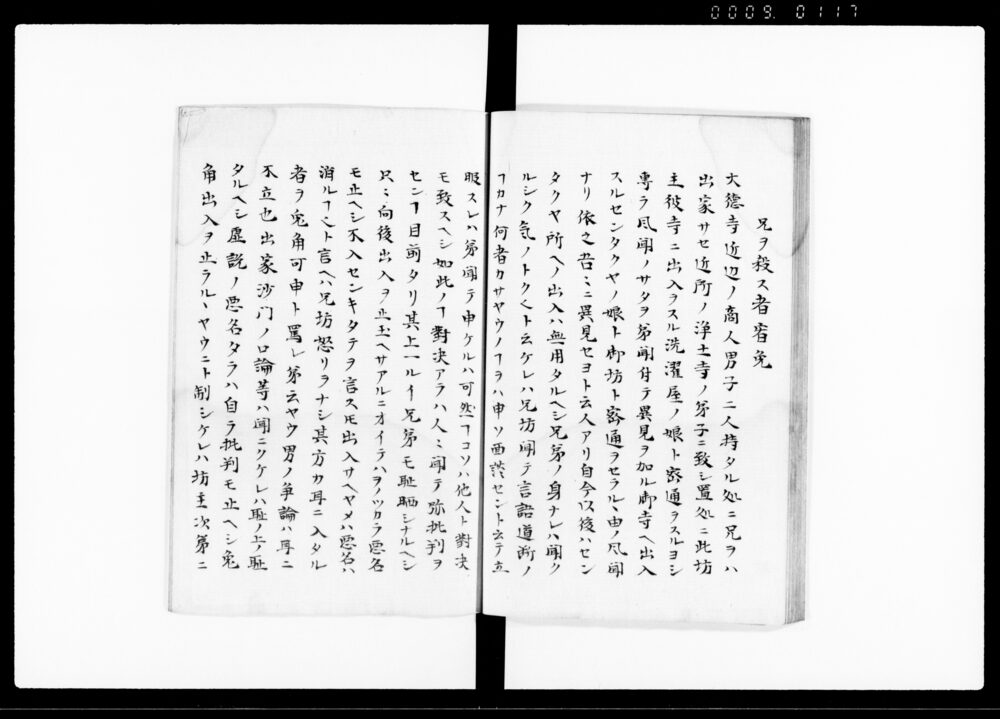 0009. 0117
兄ヲ殺ス者宥免
大徳寺近辺ノ商人男子二人持タル処ニ兄ヲハ
出家サセ近所ノ浄土寺ノ弟子ニ致シ置処ニ此坊
主彼寺ニ出入ヲスル洗濯屋ノ娘ト密通ヲスルヨシ
専ラ風聞ノサタヲ弟聞付テ異見ヲ加ル御寺ヘ出入
スルセンタクヤノ娘ト御坊ト密通ヲセラルヽ由ノ風聞
ナリ依之吾ミニ異見セヨト云人アリ自今以後ハセン
タクヤ所ヘノ出入ハ無用タルヘシ兄弟ノ身ナレハ聞ク
ルシク気ノトクヽト云ケレハ兄坊聞テ言語道断ノ
ヿカナ何者カサヤウノヿヲハ申ソ面談セント云テ立
服スレハ弟聞テ申ケルハ可然ヿコソハ他人ト對决
モ致スヘシ如此ノヿ對决アラハ人ミ聞テ弥批判ヲ
センヿ目前タリ其上一ルイ兄弟モ耻晒シナルヘシ
只ミ向後出入ヲ止玉ヘサアルニオイテハヲノツカラ悪名
モ止ヘシ不入センキタテヲ言スモ出入サヘヤメハ悪名ハ
消ルヿヽト言ヘハ兄坊怒リヲナシ其方カ耳ニ入タル
者ヲ兎角可申ト罵レ弟云ヤウ男ノ争論ハ耳ニ
不立也出家沙门ノ口論等ハ聞ニクケレハ耻ノ上ノ耻
タルヘシ虚説ノ悪名タラハ自ラ批判モ止ヘシ兎
角出入ヲ止ラルヽヤウニト制シケレハ坊主次第ニ